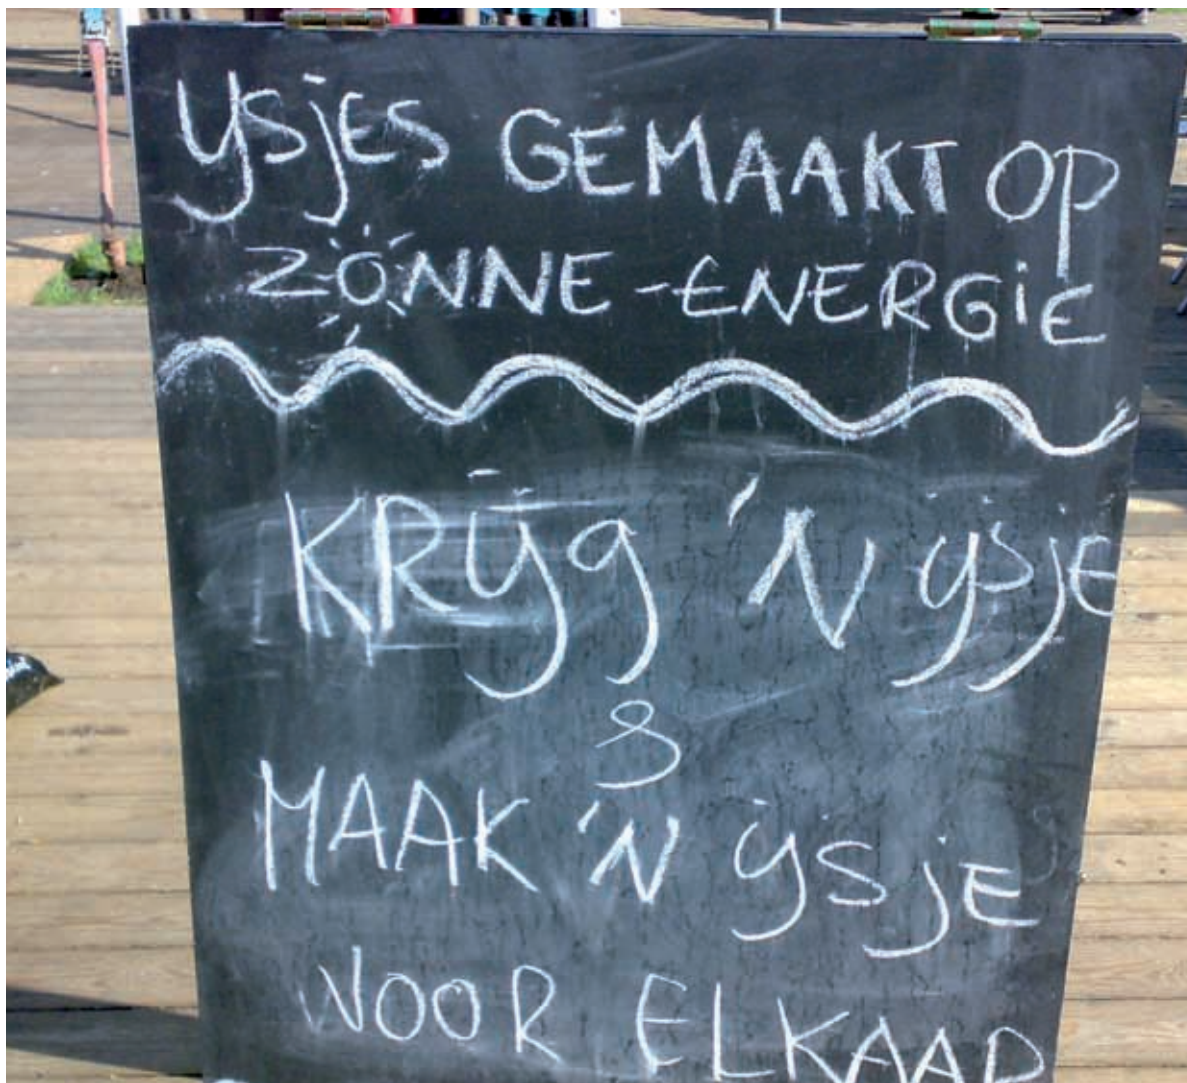 ijsjes GEMAAKT OP
ZONNE-ENERGiE
KRijg 'N ijsje
&
MAAK 'N ijsjE
VOOR ELKAAR